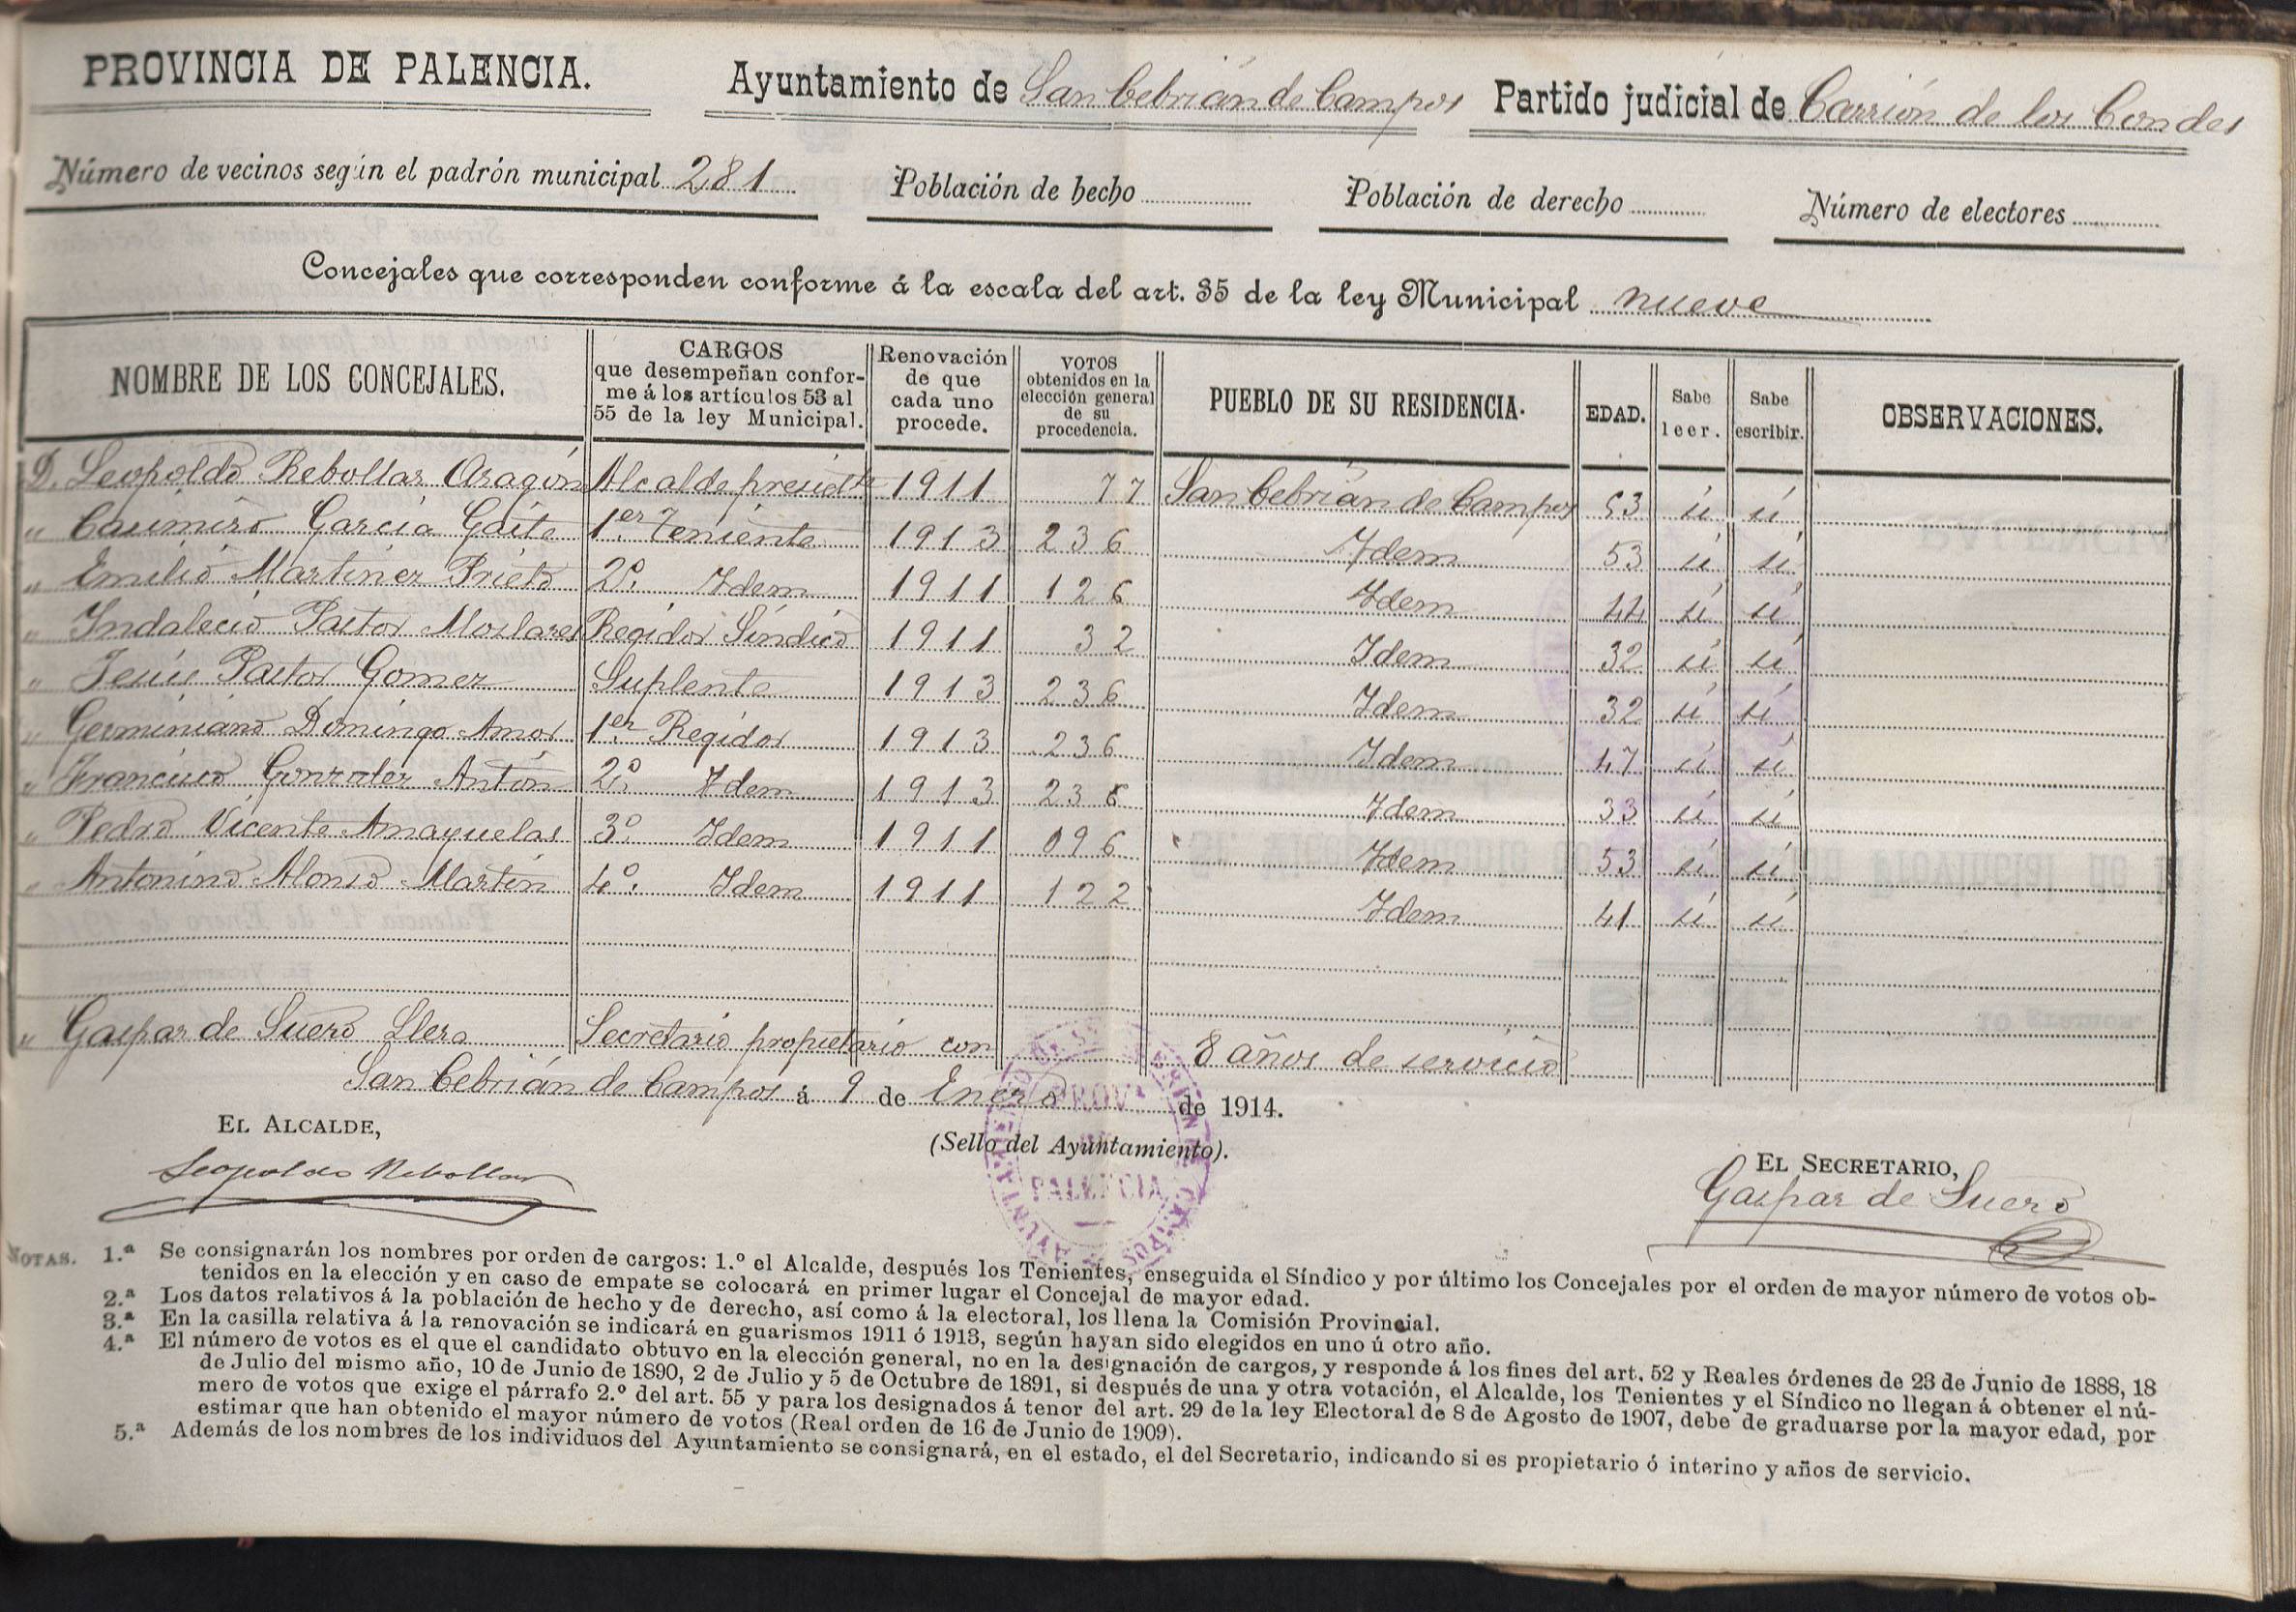 PROVINCIA DE PALENCIA. Ayuntamiento de San Cebrián de Campos Partido judicial de Carrión de los Condes
Número de vecinos según el padrón municipal 281 Población de hecho Población de derecho Número de electores
Concejales que corresponden conforme á la escala del art. 35 de la ley Municipal nueve
NOMBRE DE LOS CONCEJALES.
CARGOS
que desempeñan confor-
me á los artículos 53 al
55 de la ley Municipal.
Renovación
de que
cada uno
procede.
VOTOS
obtenidos en la
elección general
de su
procedencia.
PUEBLO DE SU RESIDENCIA.
EDAD.
Sabe
leer.
Sabe
escribir.
OBSERVACIONES.
D. Leopoldo Rebollar Aragón Alcalde presidte 1911 77 San Cebrián de Campos 53 sí sí
" Casimiro García Gaite 1er Teniente 1913 236 Idem 53 sí sí
" Emilio Martinez Prieto 2º. Idem 1911 126 Idem 44 sí sí
" Indalecio Pastor Moslares Regidor Síndico 1911 32 Idem 32 sí sí
" Jesús Pastor Gomez Suplente 1913 236 Idem 32 sí sí
" Germiniano Domingo Amor 1er Regidor 1913 236 Idem 47 sí sí
" Francisco Gonzalez Antón 2º. Idem 1913 236 Idem 33 sí sí
" Pedro Vicente Amayuelas 3º. Idem 1911 096 Idem 53 sí sí
" Antonino Alonso Martín 4º. Idem 1911 122 Idem 41 sí sí
" Gaspar de Suero Llera Secretario propietario con 8 años de servicio
San Cebrián de Campos á 9 de Enero de 1914.
EL ALCALDE,
(Sello del Ayuntamiento).
EL SECRETARIO,
Leopoldo Rebollar
Gaspar de Suero
PROV.ª
PALENCIA
NOTAS. 1.ª Se consignarán los nombres por orden de cargos: 1.º el Alcalde, después los Tenientes, enseguida el Síndico y por último los Concejales por el orden de mayor número de votos ob-
tenidos en la elección y en caso de empate se colocará en primer lugar el Concejal de mayor edad.
2.ª Los datos relativos á la población de hecho y de derecho, así como á la electoral, los llena la Comisión Provincial.
3.ª En la casilla relativa á la renovación se indicará en guarismos 1911 ó 1913, según hayan sido elegidos en uno ú otro año.
4.ª El número de votos es el que el candidato obtuvo en la elección general, no en la designación de cargos, y responde á los fines del art. 52 y Reales órdenes de 23 de Junio de 1888, 18
de Julio del mismo año, 10 de Junio de 1890, 2 de Julio y 5 de Octubre de 1891, si después de una y otra votación, el Alcalde, los Tenientes y el Síndico no llegan á obtener el nú-
mero de votos que exige el párrafo 2.º del art. 55 y para los designados á tenor del art. 29 de la ley Electoral de 8 de Agosto de 1907, debe de graduarse por la mayor edad, por
estimar que han obtenido el mayor número de votos (Real orden de 16 de Junio de 1909).
5.ª Además de los nombres de los individuos del Ayuntamiento se consignará, en el estado, el del Secretario, indicando si es propietario ó interino y años de servicio.